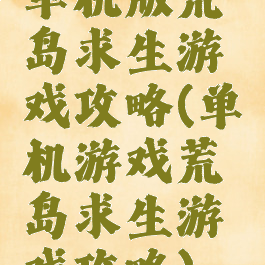 单机版荒
岛求生游
戏攻略(单
机游戏荒
岛求生游
戏攻略)